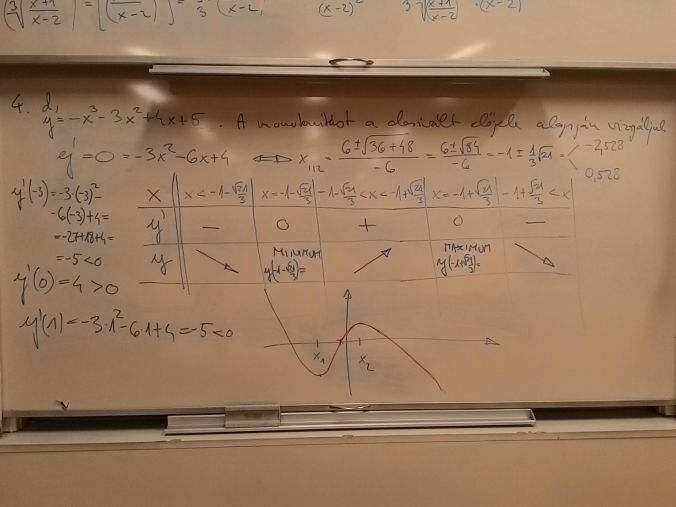 4. d,
y = -x³ - 3x² + 4x + 5. A monotonitást a derivált előjele alapján vizsgáljuk
y' = 0 = -3x² - 6x + 4 ⟺ x₁,₂ = (6 ± √(36+48))/(-6) = (6 ± √84)/(-6) = -1 ± 1/3 √21 = < -2,528 0,528
y'(-3) = -3·(-3)² -
-6(-3)+4 =
= -27+18+4 =
= -5 < 0
x | x < -1-√21/3 | x = -1-√21/3 | -1-√21/3 < x < -1+√21/3 | x = -1+√21/3 | -1+√21/3 < x
y' | - | 0 | + | 0 | -
y | ↘ | MINIMUM y(-1-√21/3)= | ↗ | MAXIMUM y(-1+√21/3)= | ↘
y'(0) = 4 > 0
y'(1) = -3·1² - 6·1 + 4 = -5 < 0
x₁ x₂